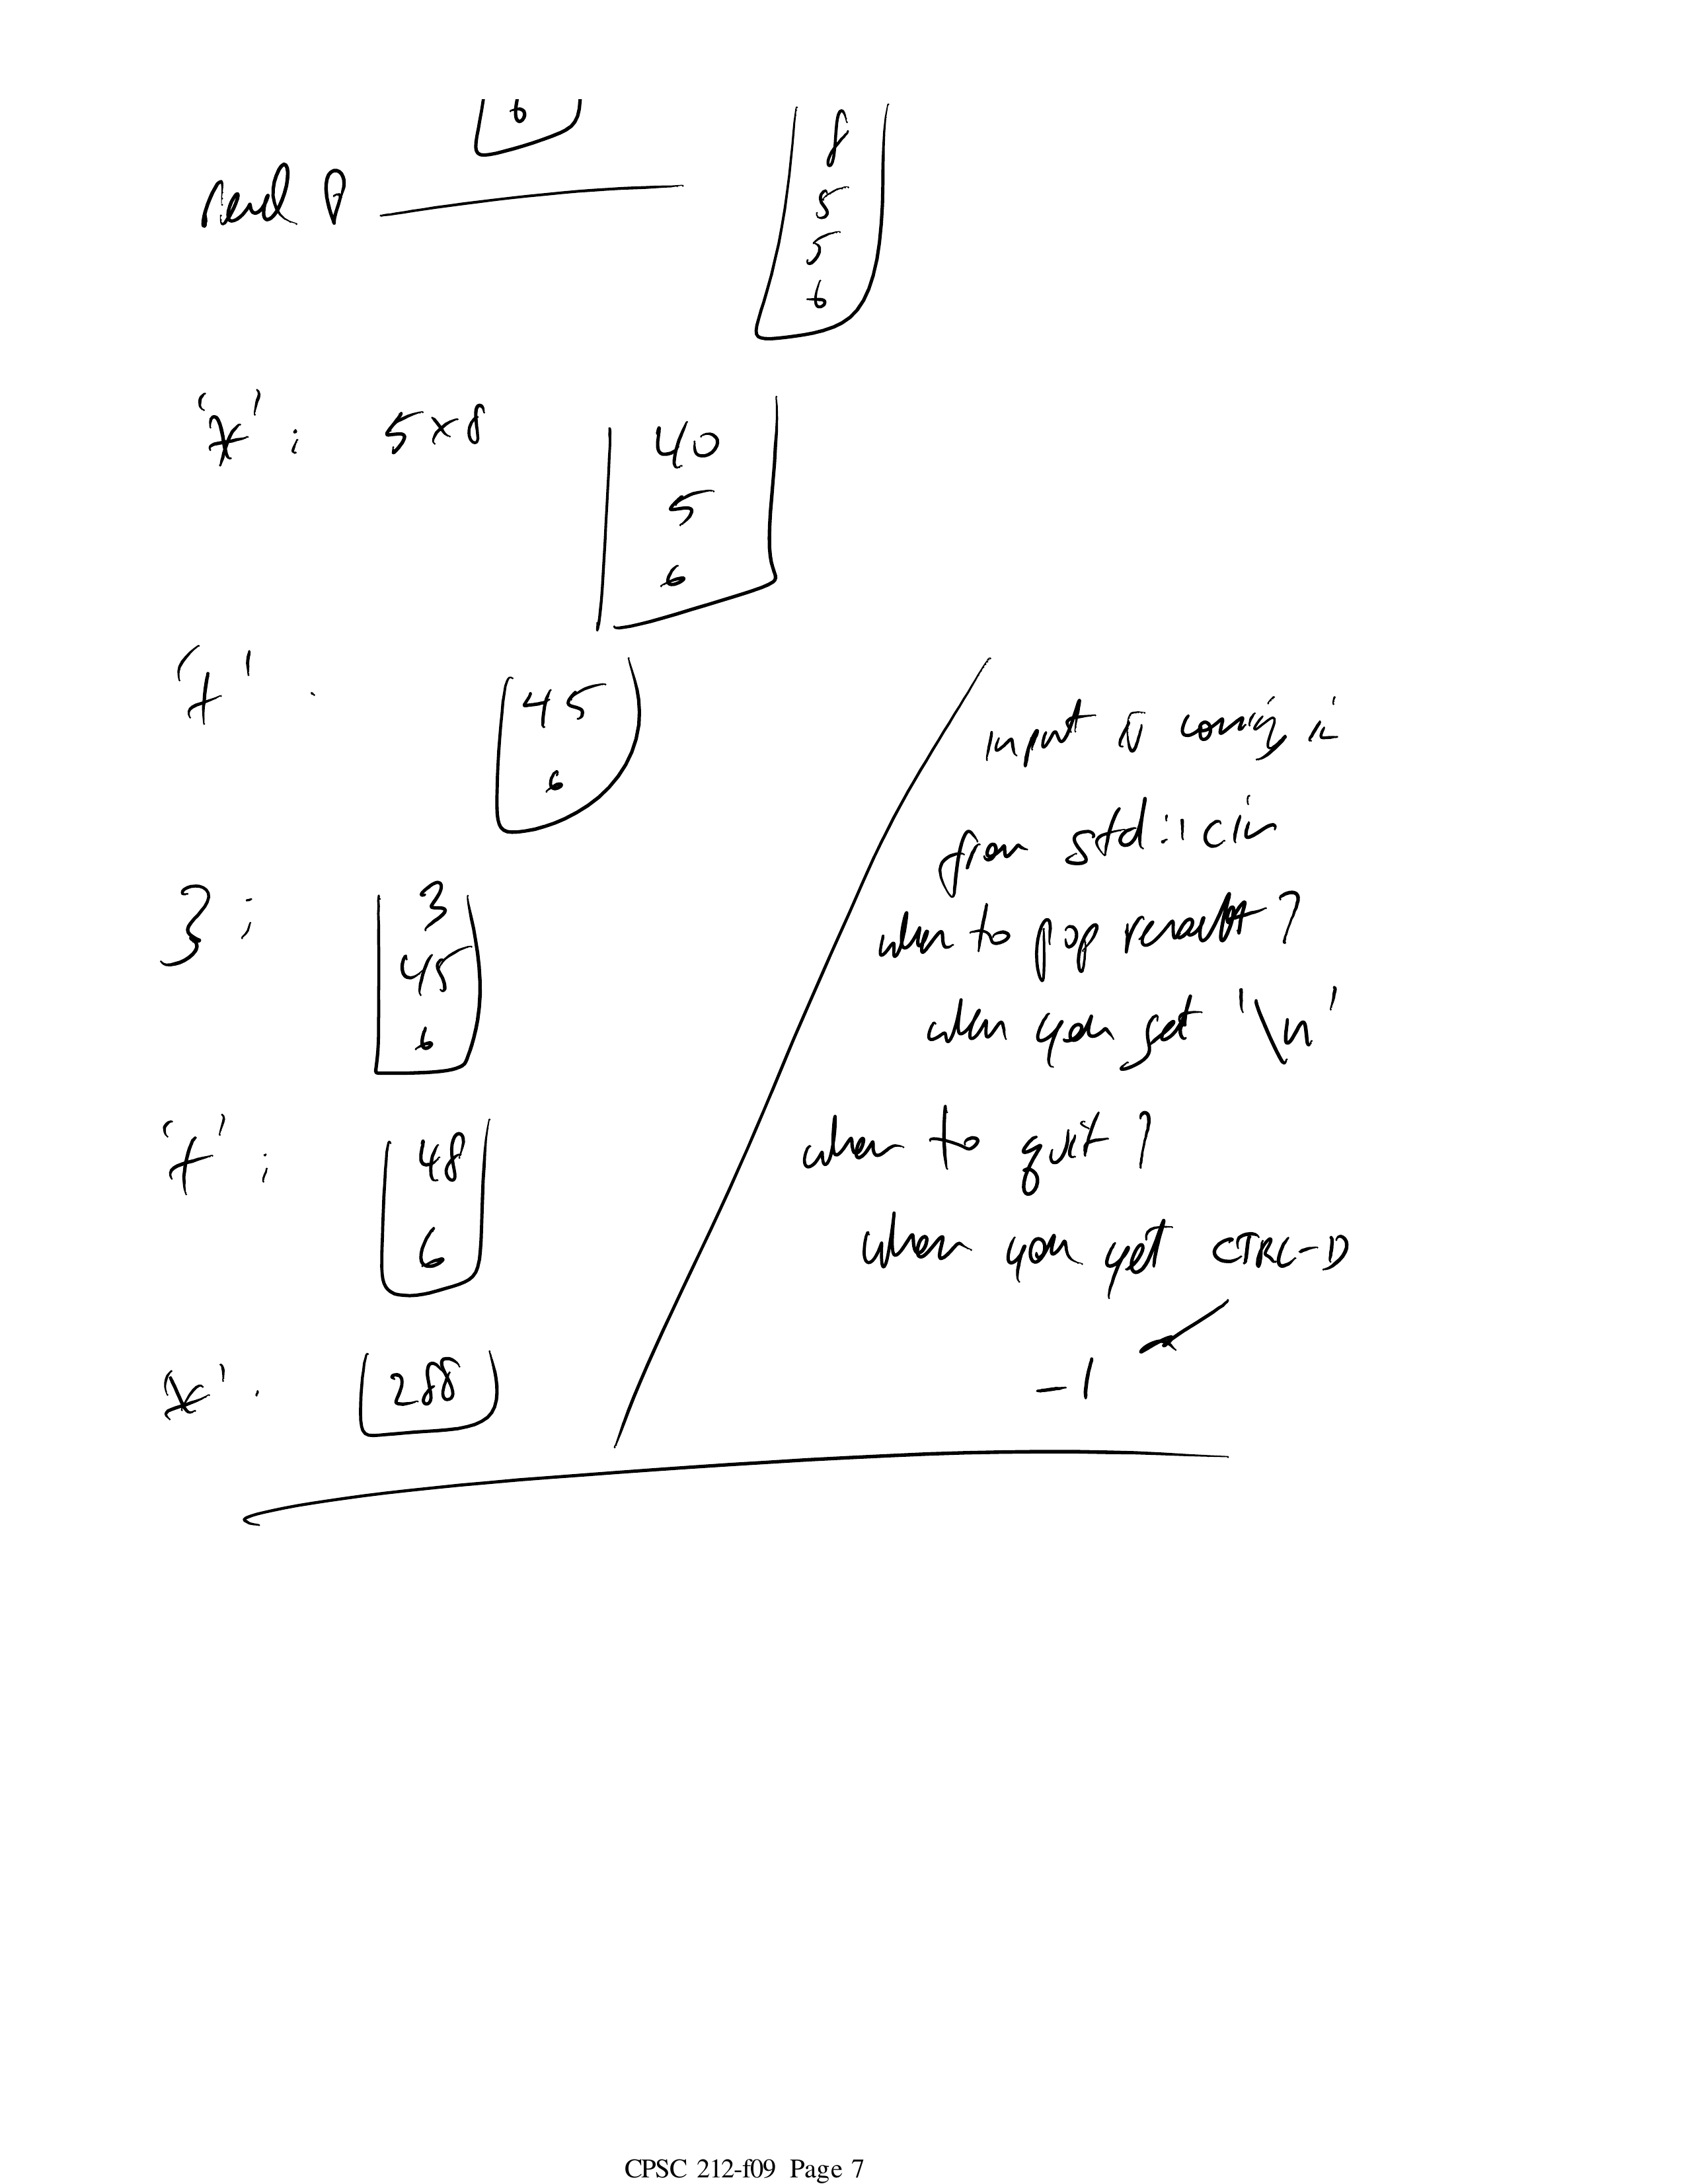 6
read 8
8
5
5
6
'*' : 5x8
40
5
6
'+' :
45
6
3 :
3
45
6
'+' :
48
6
*' :
288
input is coming in
from std::cin
when to pop result?
when you get '\n'
when to quit?
when you get CTRL-D
-1
CPSC 212-f09 Page 7